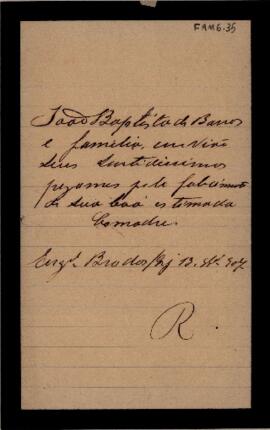 FAM6.35
João Baptista de Barros
e familia, envião
seus sentidissimos
pezames pelo fallecimento
de sua boa estimada
Comadre.
Engº
R